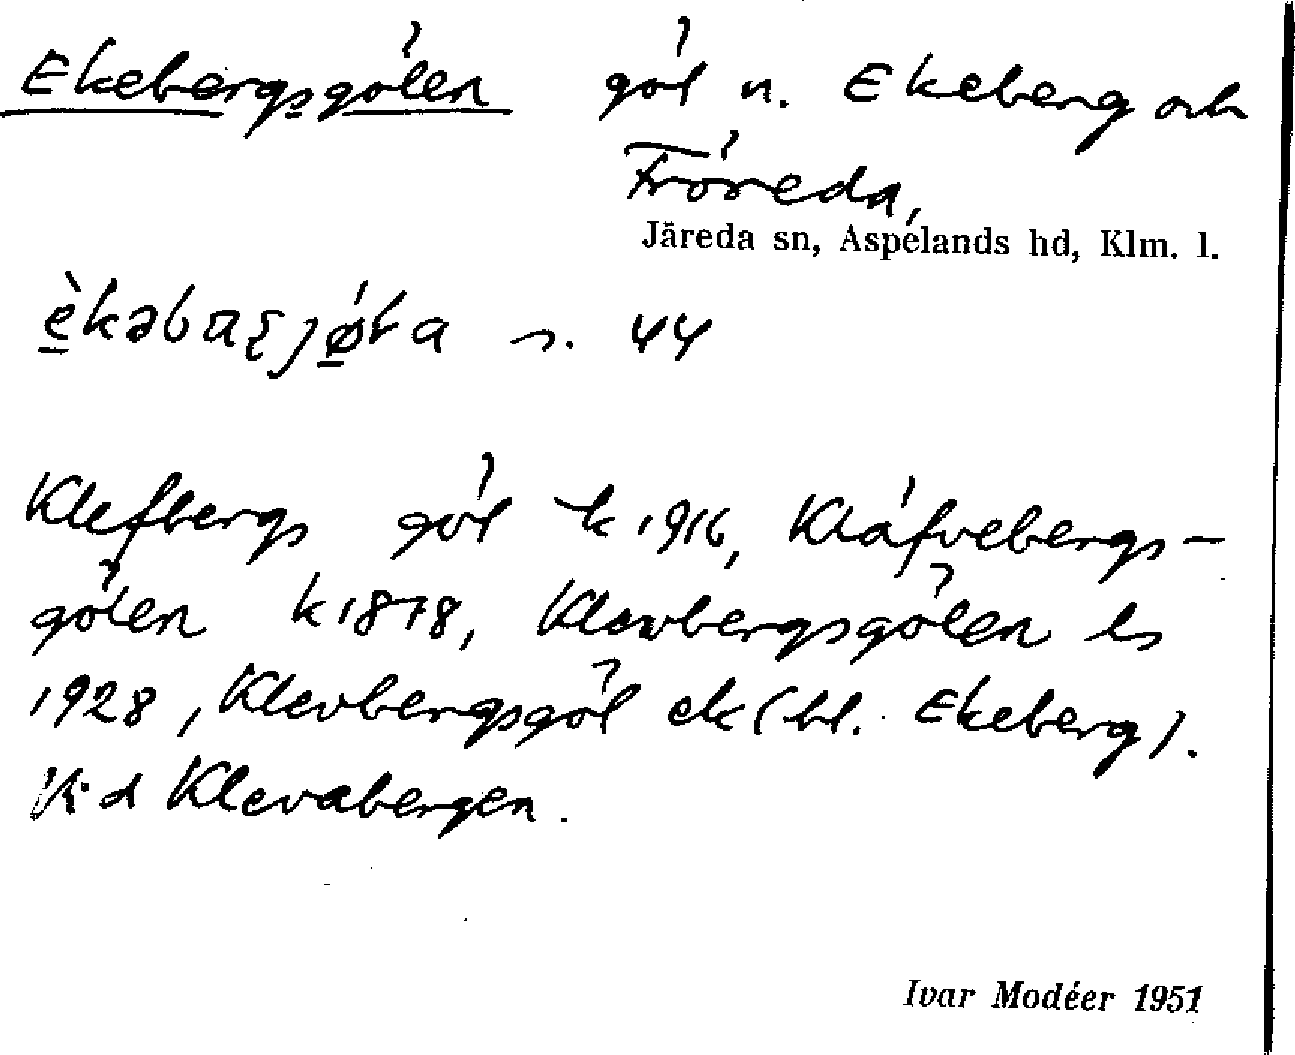 Ekebergsgölen göl n. Ekeberg och
Fröreda,
Järeda sn, Aspelands hd, Klm. l.
s. 44
Klefbergs göl k 1916, Kläfvebergs-
gölen k 1878, Klevbergsgölen ls
1928, Klevbergsgöl ek (bl. Ekeberg).
Vid Klevabergen.
Ivar Modéer 1951